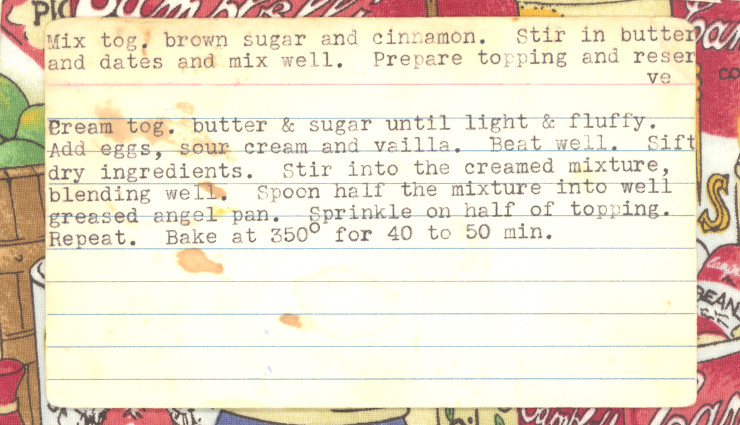 Mix tog. brown sugar and cinnamon. Stir in butter
and dates and mix well. Prepare topping and reser
ve
Cream tog. butter & sugar until light & fluffy.
Add eggs, sour cream and vailla. Beat well. Sift
dry ingredients. Stir into the creamed mixture,
blending well. Spoon half the mixture into well
greased angel pan. Sprinkle on half of topping.
Repeat. Bake at 350° for 40 to 50 min.
Campbell's
BEAN